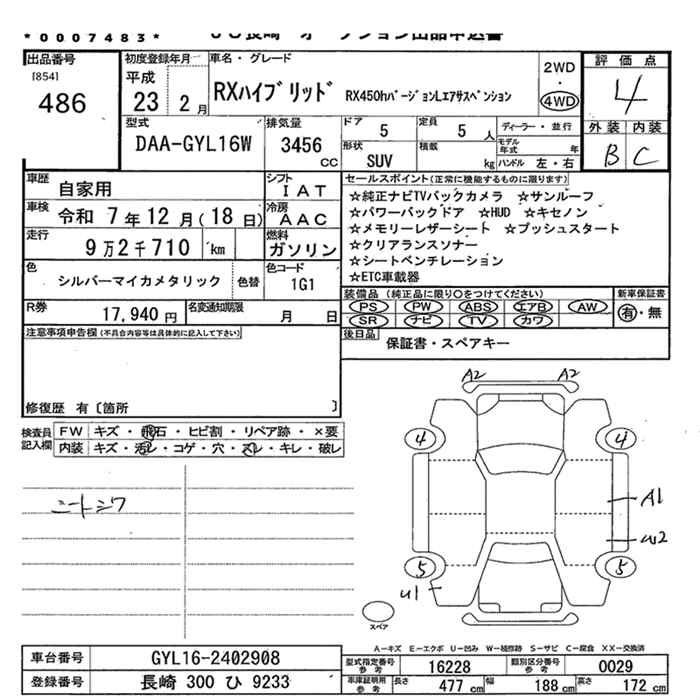 *0007483* JU長崎 オークション出品申込書
出品番号 [854] 486
初度登録年月 平成 23 2月
車名・グレード RXハイブリッド RX450hバージョンLエアサスペンション
2WD・4WD
評価点 4
型式 DAA-GYL16W
排気量 3456 CC
ドア 5
定員 5 人
ディーラー・並行
外装 B
内装 C
形状 SUV
積載 kg
モデル年式 年
ハンドル 左・右
車歴 自家用
シフト IAT
車検 令和 7年12月(18日)
冷房 AAC
走行 9万2千710 km
燃料 ガソリン
色 シルバーマイカメタリック 色替
色コード 1G1
R券 17,940円
名変通知期限 月 日
セールスポイント(正常に機能するものに限ります)
☆純正ナビTVバックカメラ ☆サンルーフ
☆パワーバックドア ☆HUD ☆キセノン
☆メモリーレザーシート ☆プッシュスタート
☆クリアランスソナー
☆シートベンチレーション
☆ETC車載器
装備品(純正品に限り○をつけてください)
PS PW ABS エアB AW
SR ナビ TV カワ
新車保証書 有・無
後日品 保証書・スペアキー
注意事項申告欄(不具合内容等は具体的に記入して下さい)
修復歴 有〔箇所 〕
検査員記入欄
FW キズ・飛石・ヒビ割・リペア跡・×要
内装 キズ・汚レ・コゲ・穴・スレ・キレ・破レ
シートシワ
A2 A2
4 4
A1
W2
5 5
U1
スペア
A-キズ E-エクボ U-凹み W-補修跡 S-サビ C-腐食 XX-交換済
車台番号 GYL16-2402908
登録番号 長崎 300 ひ 9233
型式指定番号 参考 16228
類別区分番号 参考 0029
車庫証明用 参考 長さ 477 cm 幅 188 cm 高さ 172 cm